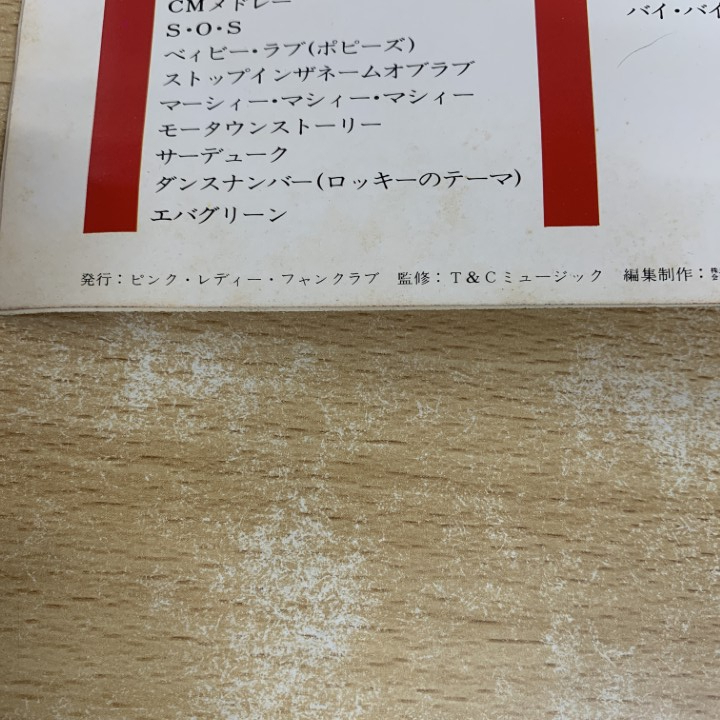 CMメドレー
S・O・S
ベィビー・ラブ(ポピーズ)
ストップインザネームオブラブ
マーシィー・マシィー・マシィー
モータウンストーリー
サーデューク
ダンスナンバー(ロッキーのテーマ)
エバグリーン
バイ・バイ
発行：ピンク・レディー・ファンクラブ 監修：T&Cミュージック 編集制作：